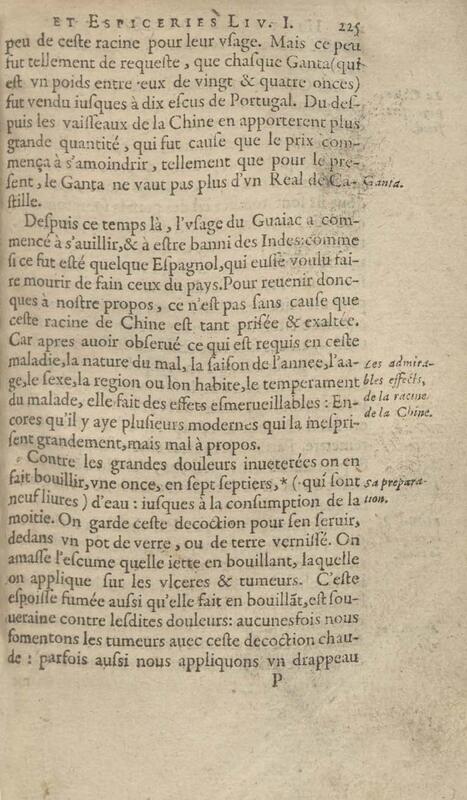 ET ESPICERIES LIV. I. 225
peu de ceſte racine pour leur vſage. Mais ce peu
fut tellement de requeſte, que chaſque Ganta (qui
eſt vn poids entre eux de vingt & quatre onces)
fut vendu iuſques à dix eſcus de Portugal. Du deſ-
puis les vaiſſeaux de la Chine en apporterent plus
grande quantité, qui fut cauſe que le prix com-
mença à s'amoindrir, tellement que pour le pre-
ſent, le Ganta ne vaut pas plus d'vn Real de Ca- Ganta.
ſtille.
Deſpuis ce temps là, l'vſage du Guaiac a com-
mencé à s'auillir, & à eſtre banni des Indes: comme
ſi ce fut eſté quelque Eſpagnol, qui euſſe voulu fai-
re mourir de fain ceux du pays. Pour reuenir donc-
ques à noſtre propos, ce n'eſt pas ſans cauſe que
ceſte racine de Chine eſt tant priſée & exaltée.
Car apres auoir obſerué ce qui eſt requis en ceſte
maladie, la nature du mal, la ſaiſon de l'annee, l'aa- Les admira-
ge, le ſexe, la region ou lon habite, le temperament bles effects,
du malade, elle fait des effets eſmerueillables: En- de la racine
cores qu'il y aye pluſieurs modernes qui la meſpri- de la Chine.
ſent grandement, mais mal à propos.
Contre les grandes douleurs inueterées on en
fait bouillir, vne once, en ſept ſeptiers,* (qui ſont sa prepara-
neuf liures) d'eau: iuſques à la conſumption de la tion.
moitie. On garde ceſte decoction pour ſen ſeruir,
dedans vn pot de verre, ou de terre verniſſé. On
amaſſe l'eſcume quelle iette en bouillant, laquelle
on applique ſur les vlceres & tumeurs. C'eſte
eſpoiſſe fumée auſſi qu'elle fait en bouillãt, eſt ſou-
ueraine contre leſdites douleurs: aucunesfois nous
fomentons les tumeurs auec ceſte decoction chau-
de: parfois auſſi nous appliquons vn drappeau
P